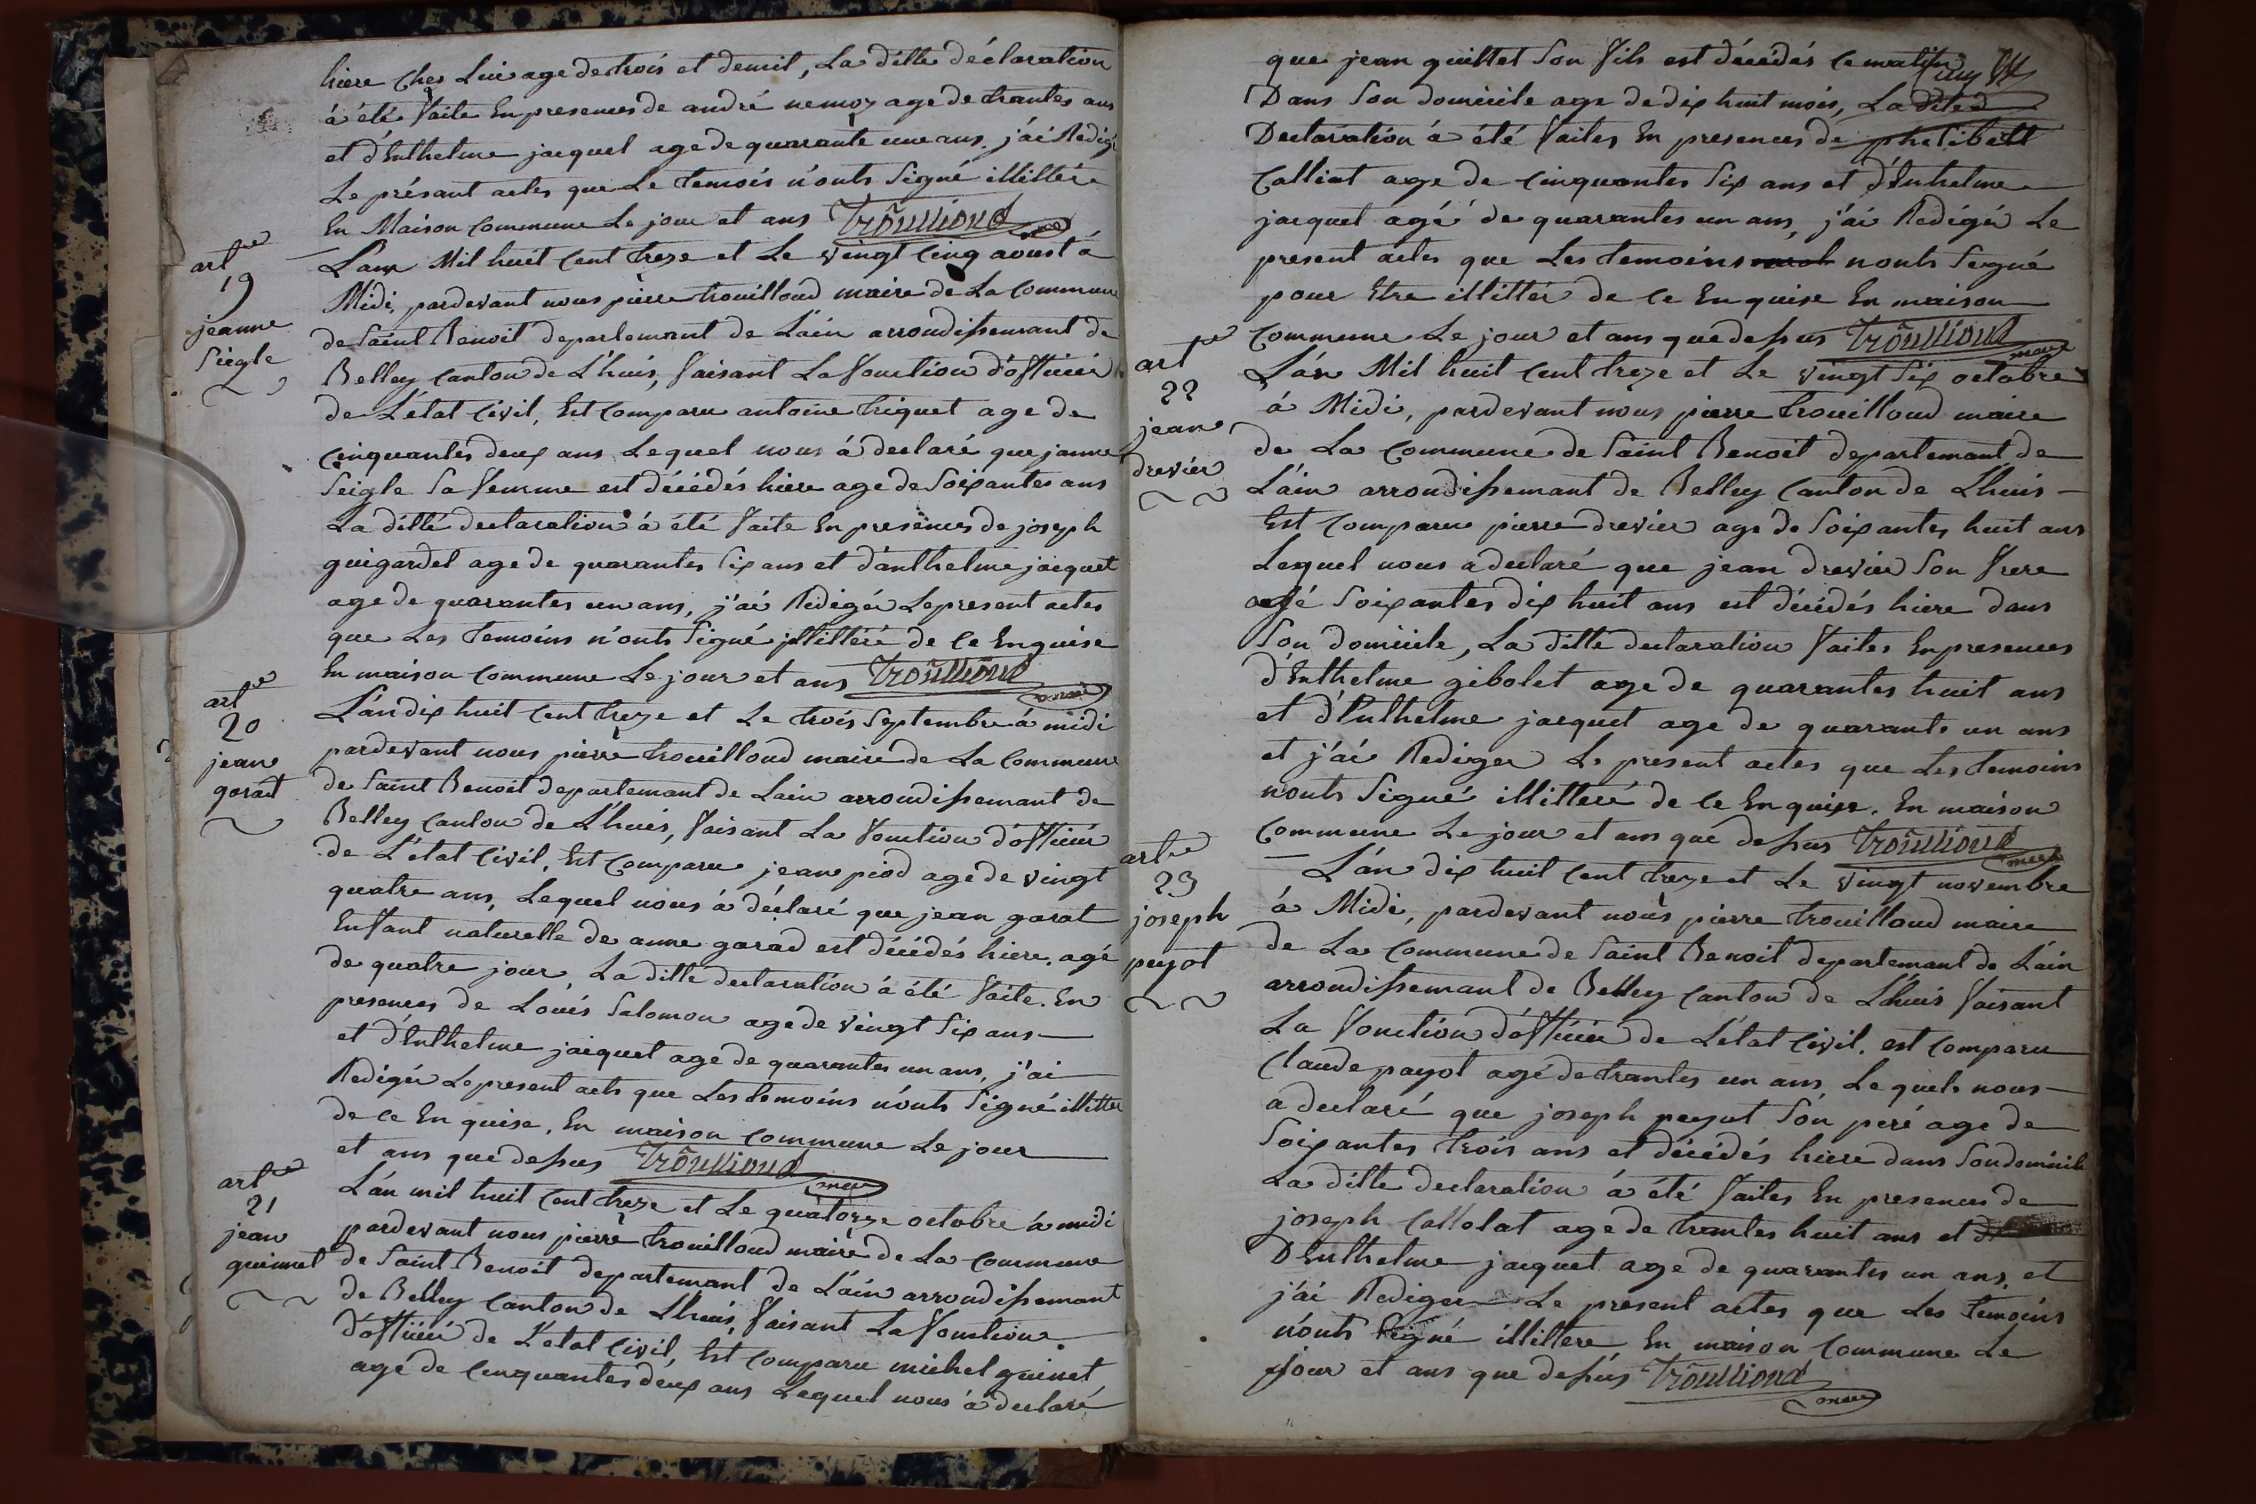 hiere ches Lui age de trois et demit, La ditte déclaration
à été faite En presences de andré nemoz age de trantes ans
et d'Enthelme jacquet age de quarante une ans. j'ai Redigé
Le présant actes que Le temois n'onts Signé illittére
En Maison commune Le jour et ans Trouilloud maire
art.e
19
jeanne
Siegle
L'an Mil huit cent treze et Le vingt cinq aoust à
Midi, pardevant nous pierre trouilloud maire de La Commune
de Saint Benoit departemant de L'ain arrondissemant de
Belley canton de L'huis, faisant La fonction d'officier
de L'état Civil, Est comparu antoine triquet age de
cinquantes deux ans Lequel nous à declaré que janne
Seigle Sa femme est décédés hiere age de Soixantes ans
La ditte declaration à été faite En presences de joseph
guigardet age de quarantes six ans et d'anthelme jacquet
age de quarantes un ans, j'ai Redigér Le present actes
que Les temoins n'onts Signé illittéré de ce Enquise
En maison commune Le jour et ans Trouilloud maire
art.e
20
jean
garat
L'an dix huit cent treze et Le trois Septembre à midi
pardevant nous pierre trouilloud maire de La Commune
de Saint Benoit departemant de Lain arrondissemant de
Belley canton de L'huis, faisant La fonction d'officier
de L'état Civil, Est comparu jean piod age de vingt
quatre ans, Lequel nous à déclaré que jean garat
Enfant naturelle de anne garad est décédés hiere. agé
de quatre jour. La ditte declaration à été faite. En
presences de Louis Salomon age de vingt six ans
et d'Enthelme jacquet age de quarantes un ans, j'ai
Redigér Le present acts que Les temoins n'onts Signé illitter
de ce En quise. En maison commune Le jour
et ans que dessus Trouilloud maire
art.e
21
jean
guinet
L'an mil huit cent treze et Le quatorze octobre à midi
pardevant nous pierre trouilloud maire de La commune
de Saint Benoit departemant de L'ain arrondissemant
de Belley canton de Lhuis, faisant La fonction
d'officier de L'etat Civil, Est comparu michel guinet
age de cinquantes deux ans Lequel nous à declaré
que jean guittet Son fils est décédés ce matin
Dans Son domicile age de dix huit mois, La dite
Declaration à été faites En presences de philibett
Calliat age de cinquantes Six ans et d'Enthelme
jacquet agé de quarantes un ans, j'ai Redigér Le
present actes que Les temoins nonts Seigné
pour Etre illittér de ce En quise En maison
commune Le jour et ans que dessus Trouilloud maire
art.e
22
jean
drevier
L'an Mil huit cent treze et Le vingt Six octobre
à Midi, pardevant nous pierre trouilloud maire
de La Commune de Saint Benoit departemant de
L'ain arrondissemant de Belley canton de Lhuis
Est comparu pierre drevier age de Soixantes huit ans
Lequel nous a declaré que jean drevier Son frere
agé Soixantes dix huit ans est décédés hiere dans
Son domicile, La ditte declaration faites En presences
d'Enthelme gibolet age de quarantes huit ans
et d'Enthelme jacquet age de quarante un ans
et j'ai Rediger Le present actes que Les temoins
nonts Signé illitteré de ce En quise. En maison
commune Le jour et ans que dessus Trouilloud maire
art.e
23
joseph
peyot
L'an dix huit cent treze et Le vingt novembre
à Midi, pardevant nous pierre trouilloud maire
de La commune de Saint Benoit departemant de L'ain
arrondissemant de Belley canton de Lhuis faisant
La fonction d'officier de L'état Civil. est comparu
Claude payot agé de trantes un ans Lequel nous
a declaré que joseph peyot Son peré age de
Soixantes trois ans et décédés hiere dans Son domicile
La ditte declaration à été faites En presences de
joseph Callolat age de trantes huit ans et
D'Enthelme jacquet age de quarantes un ans, et
j'ai Rediger Le present actes que Les temoins
n'onts Seigné illittere En maison Commune Le
jour et ans que dessus Trouilloud maire